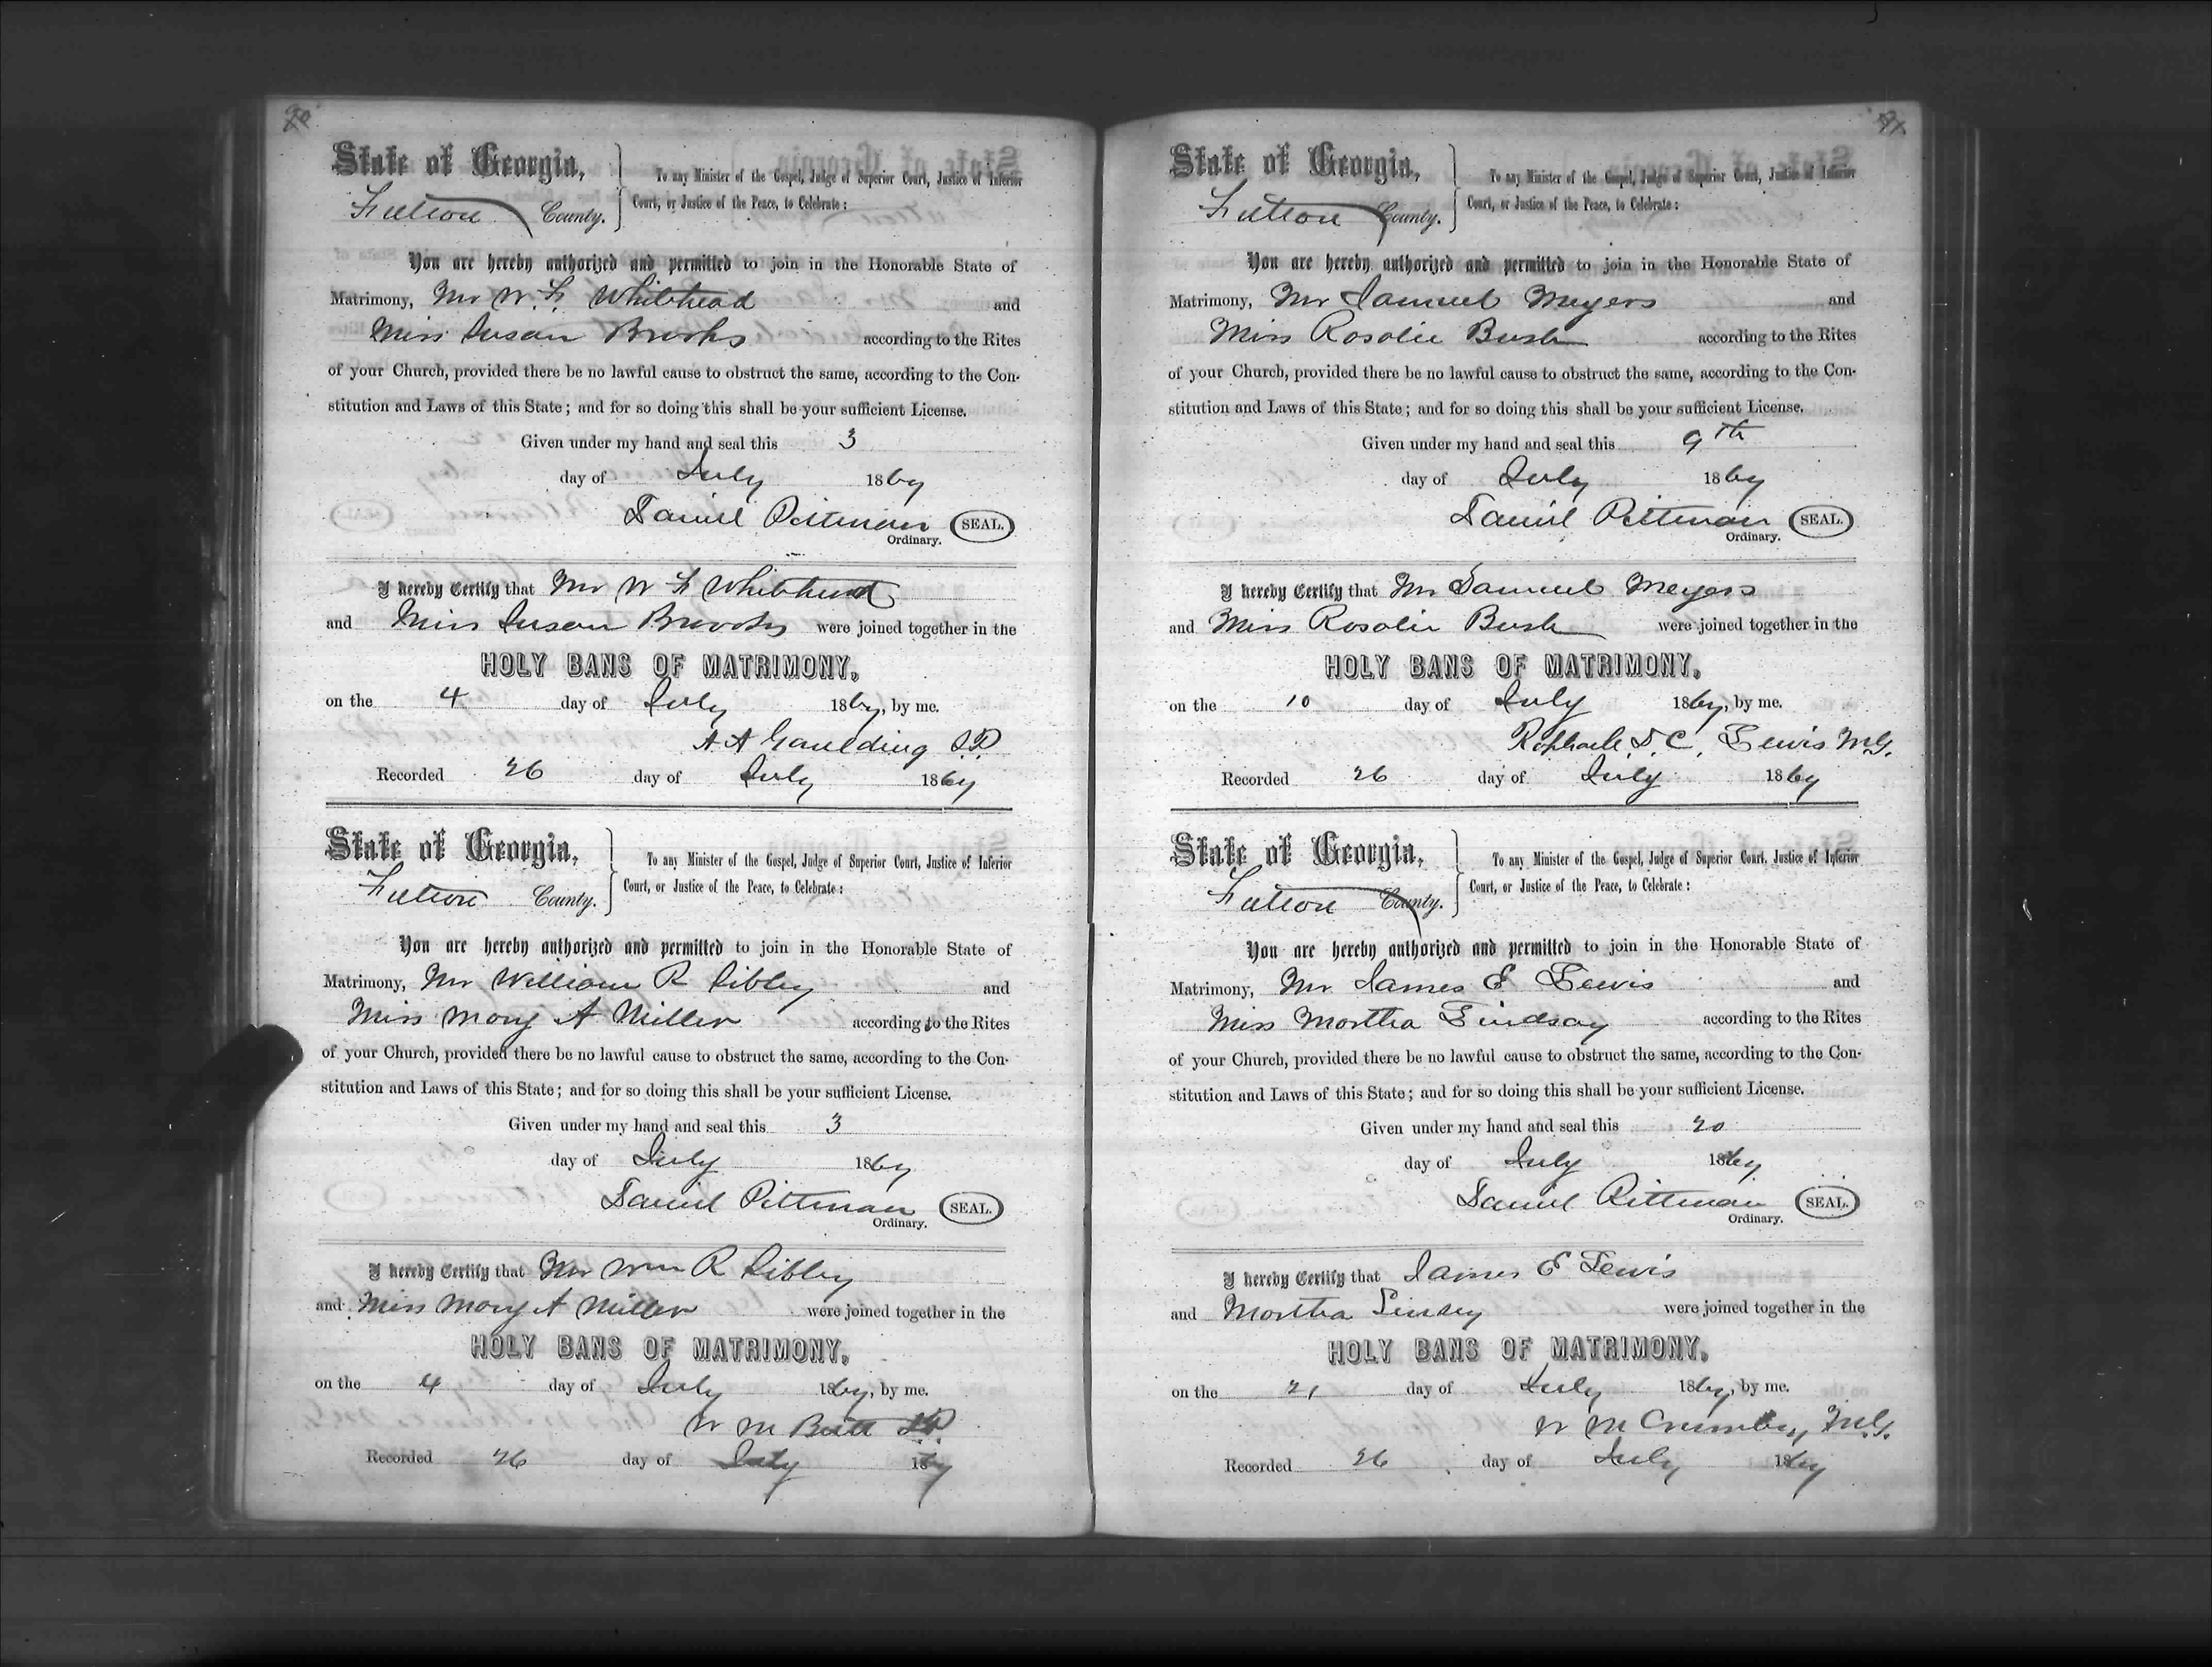 90
State of Georgia,
Fulton County.
To any Minister of the Gospel, Judge of Superior Court, Justice of Inferior
Court, or Justice of the Peace, to Celebrate:
You are hereby authorized and permitted to join in the Honorable State of
Matrimony, Mr W. F. Whitehead and
Miss Susan Brooks according to the Rites
of your Church, provided there be no lawful cause to obstruct the same, according to the Con-
stitution and Laws of this State; and for so doing this shall be your sufficient License.
Given under my hand and seal this 3
day of July 1867
Daniel Pittman SEAL.
Ordinary.
I hereby Certify that Mr W F Whitehead
and Miss Susan Brooks were joined together in the
HOLY BANS OF MATRIMONY,
on the 4 day of July 1867, by me.
A A Gaulding J.P.
Recorded 26 day of July 1867
State of Georgia,
Fulton County.
To any Minister of the Gospel, Judge of Superior Court, Justice of Inferior
Court, or Justice of the Peace, to Celebrate:
You are hereby authorized and permitted to join in the Honorable State of
Matrimony, Mr William R Sibley and
Miss Mary A Miller according to the Rites
of your Church, provided there be no lawful cause to obstruct the same, according to the Con-
stitution and Laws of this State; and for so doing this shall be your sufficient License.
Given under my hand and seal this 3
day of July 1867
Daniel Pittman SEAL.
Ordinary.
I hereby Certify that Mr Wm R Sibley
and Miss Mary A Miller were joined together in the
HOLY BANS OF MATRIMONY,
on the 4 day of July 1867, by me.
W M Butt J.P.
Recorded 26 day of July 1867
91
State of Georgia,
Fulton County.
To any Minister of the Gospel, Judge of Superior Court, Justice of Inferior
Court, or Justice of the Peace, to Celebrate:
You are hereby authorized and permitted to join in the Honorable State of
Matrimony, Mr Samuel Meyers and
Miss Rosalie Bush according to the Rites
of your Church, provided there be no lawful cause to obstruct the same, according to the Con-
stitution and Laws of this State; and for so doing this shall be your sufficient License.
Given under my hand and seal this 9th
day of July 1867
Daniel Pittman SEAL.
Ordinary.
I hereby Certify that Mr Samuel Meyers
and Miss Rosalie Bush were joined together in the
HOLY BANS OF MATRIMONY,
on the 10 day of July 1867, by me.
D. C. Lewis M.G.
Recorded 26 day of July 1867
State of Georgia,
Fulton County.
To any Minister of the Gospel, Judge of Superior Court, Justice of Inferior
Court, or Justice of the Peace, to Celebrate:
You are hereby authorized and permitted to join in the Honorable State of
Matrimony, Mr James E Lewis and
Miss Martha Lindsay according to the Rites
of your Church, provided there be no lawful cause to obstruct the same, according to the Con-
stitution and Laws of this State; and for so doing this shall be your sufficient License.
Given under my hand and seal this 20
day of July 1867
Daniel Pittman SEAL.
Ordinary.
I hereby Certify that James E Lewis
and Martha Linsey were joined together in the
HOLY BANS OF MATRIMONY,
on the 21 day of July 1867, by me.
W M Crumbey M.G.
Recorded 26 day of July 1867